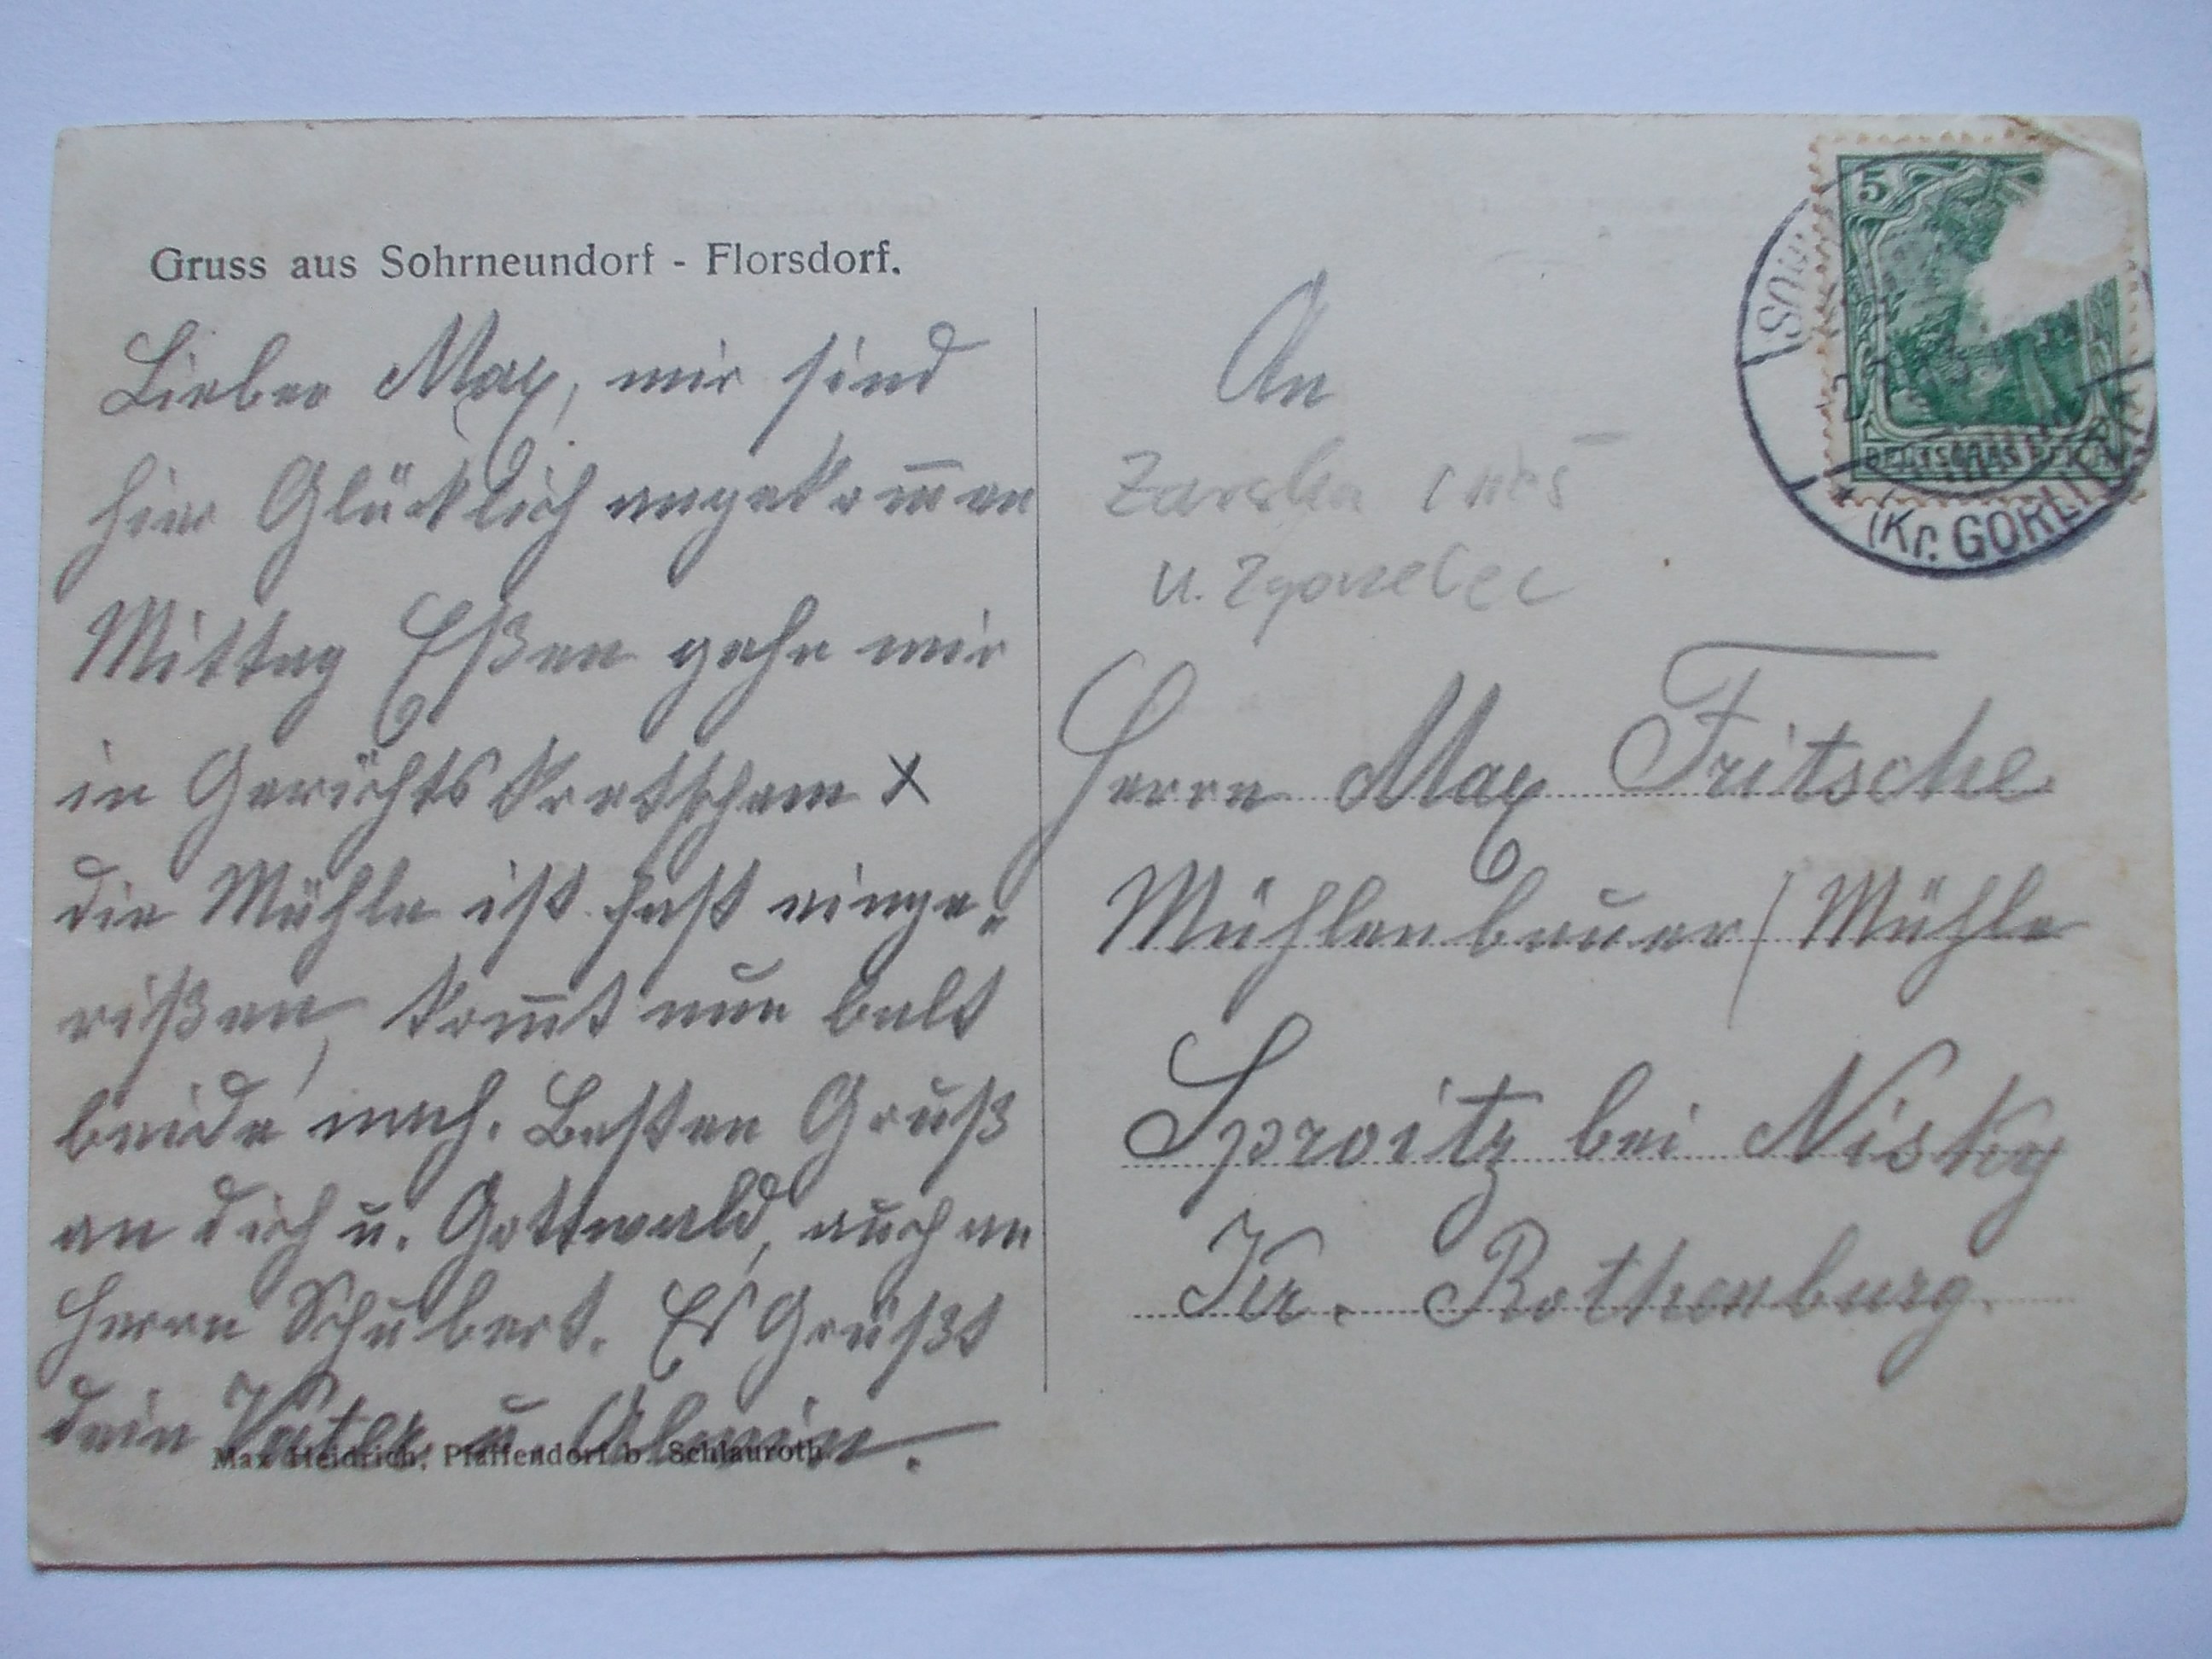 Gruss aus Sohrneundorf - Florsdorf.
Lieber Max, wir sind
hier Glücklich angekom̅en
Mittag Eßen gehn wir
in Gerichtskretscham X
die Mühle ist fast einge-
rißen, kom̅t nun balt
beide nach. Besten Gruß
an dich u. Gottwald, auch an
Herrn Schubert. Es Grüßt
dein Vater u Alwin.
Max Heidrich, Pfaffendorf b. Schlauroth.
5
DEUTSCHES REICH
SOHR NEUS
(Kr. GÖRLITZ)
An
u. Zgorzelec
Herrn Max Fritsche
Mühlenbauer / Mühle
Sproitz bei Nisky
Kr. Rothenburg.